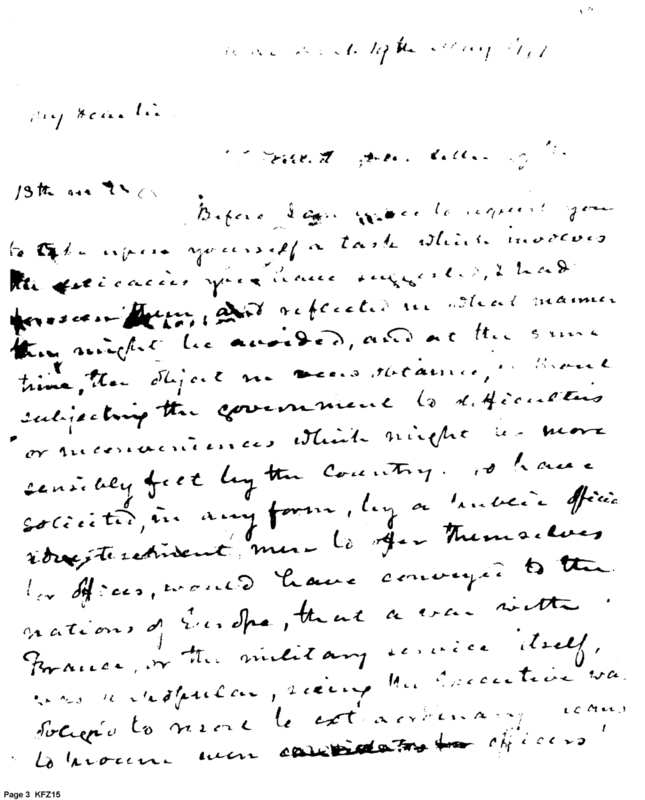 19th May
My dear Sir
your letter of the
13th
Before I to request you
to take upon yourself a task which involves
the delicacies you have suggested, I had
foreseen them, and reflected in what manner
they might be avoided, and at the same
time, the object in view obtained, without
subjecting the government to difficulties
or inconveniences which might be more
sensibly felt by the country. To have
solicited, in any form, by a public official
advertisement, men to offer themselves
for offices, would have conveyed to the
nations of Europe, that a war with
France, or the military service itself,
was unpopular, seeing the Executive was
obliged to resort to extraordinary means
to procure even officers
Page 3 KFZ15